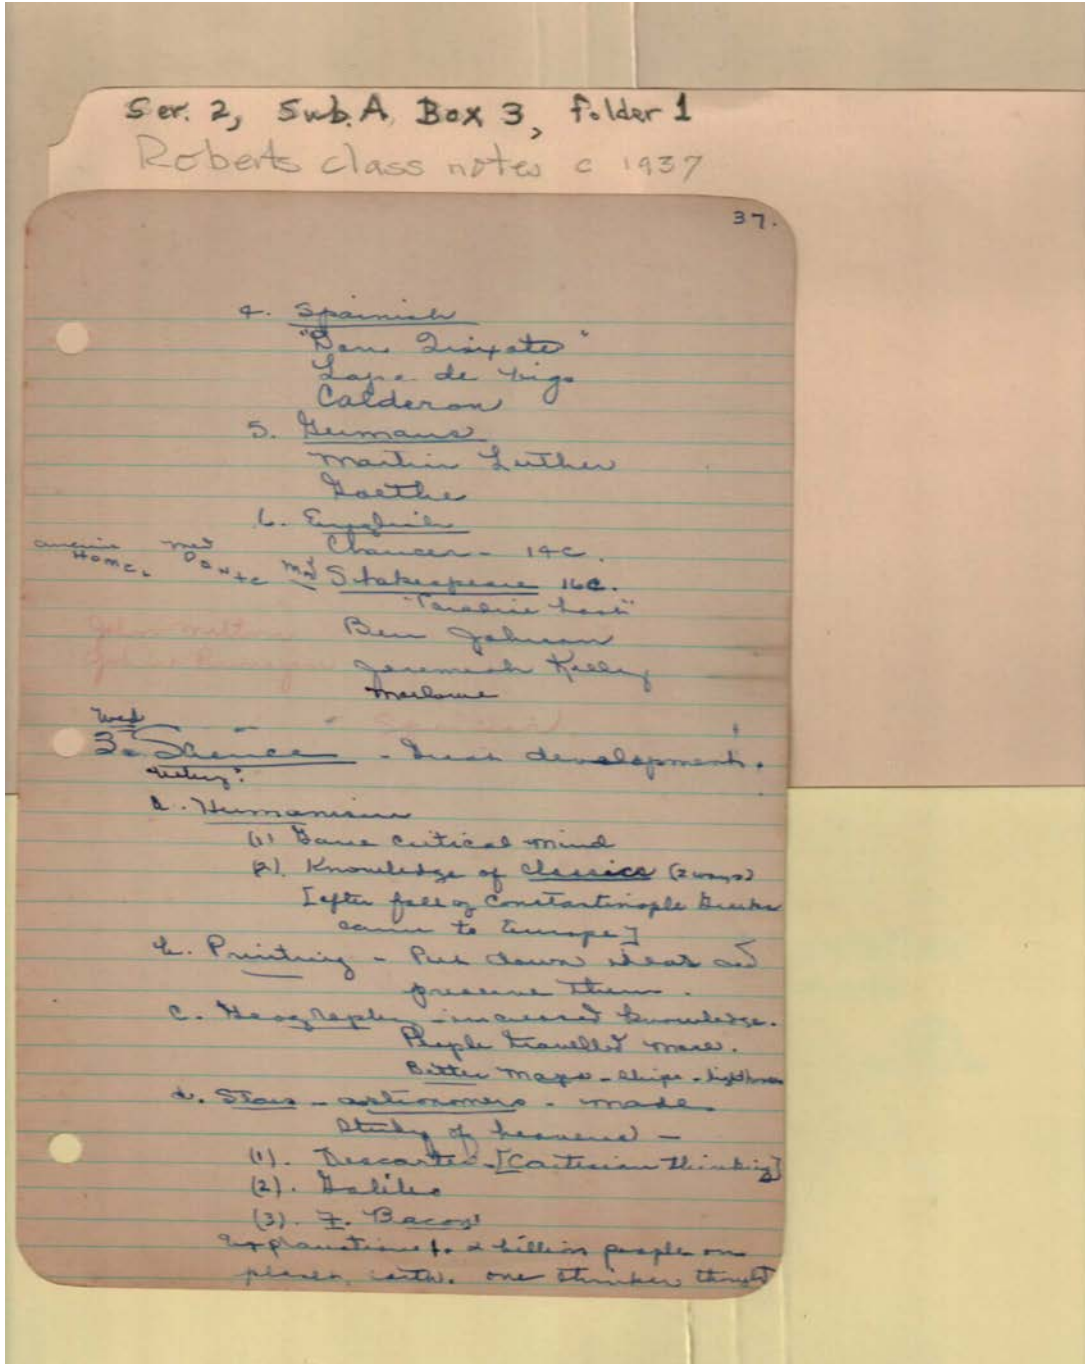 Ser. 2, Sub. A, Box 3, folder 1
Roberts class notes c 1937
37.
4. Spainish
"Don Quixote"
Lope de Vega
Calderon
5. Germans
Martin Luther
Goethe
6. English
Chaucer - 14C.
Home. Dante Shakespeare 16C.
"Paradise Lost"
John Milton Ben Johnson
John Bunyan Jeremiah
Marlowe
Wed
3. Science - Great development.
a. Humanism
(1) Gave critical mind
(2). Knowledge of classics (2 ways)
[after fall of Constantinople Greeks
came to Europe]
b. Printing - Put down ideas and
preserve them.
c. Geography - increased knowledge.
People travelled more.
Better maps - ships - lighthouses
d. Stars - astronomers - made
study of heavens -
(1). Descartes - [Cartesian thinking]
(2). Galileo
(3). F. Bacon
2 billion people on
planet earth. one thinker thought